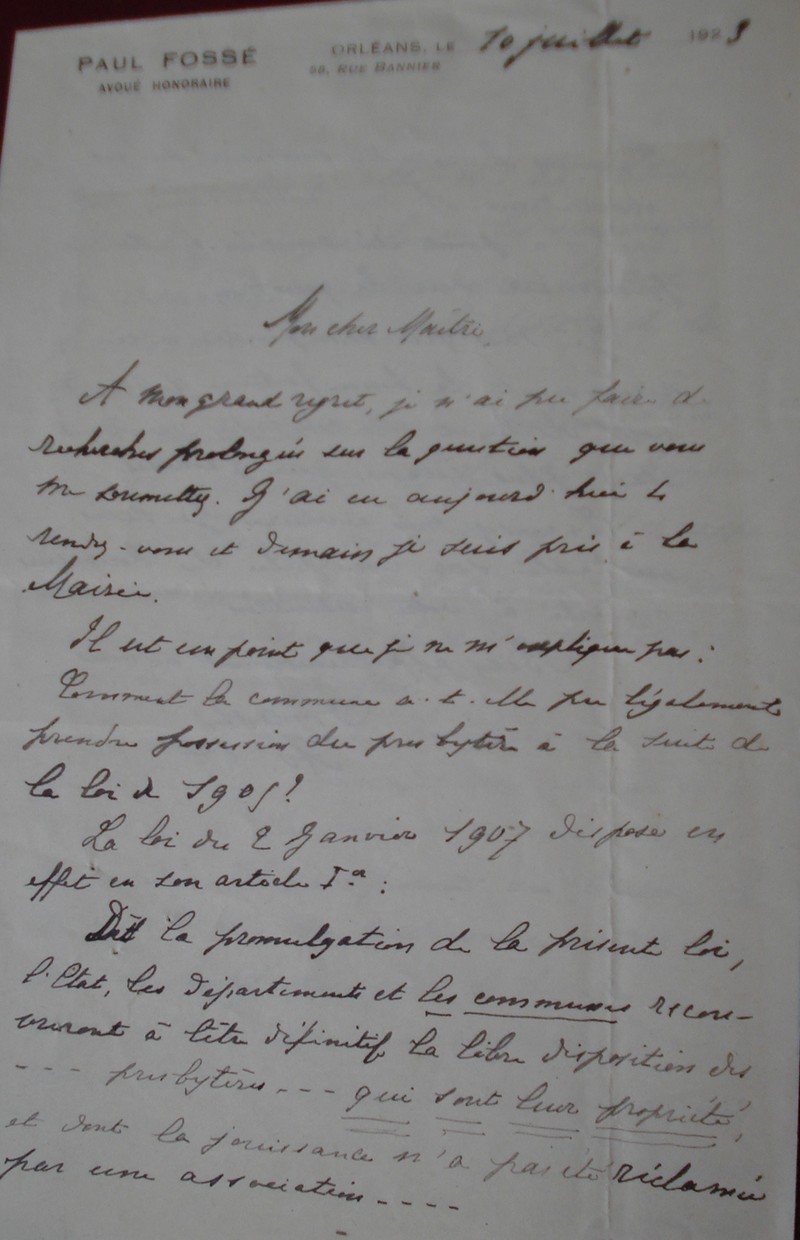 PAUL FOSSÉ
AVOUÉ HONORAIRE
ORLÉANS, LE 10 juillet 1923
58, RUE BANNIER
Mon cher Maître,
A mon grand regret, je n'ai pu faire de
recherches prolongées sur la question que vous
me soumettez. J'ai eu aujourd'hui
rendez-vous et demain je suis pris à la
Mairie.
Il est un point que je ne m'explique pas :
Comment la commune a-t-elle pu légalement
prendre possession du presbytère à la suite de
la loi de 1905 ?
La loi du 2 Janvier 1907 dispose en
effet en son article 1er :
Dès la promulgation de la présente loi,
l'Etat, les départements et les communes recou-
vreront à titre définitif la libre disposition des
--- presbytères --- qui sont leur propriété,
et dont la jouissance n'a pas été réclamée
par une association ----